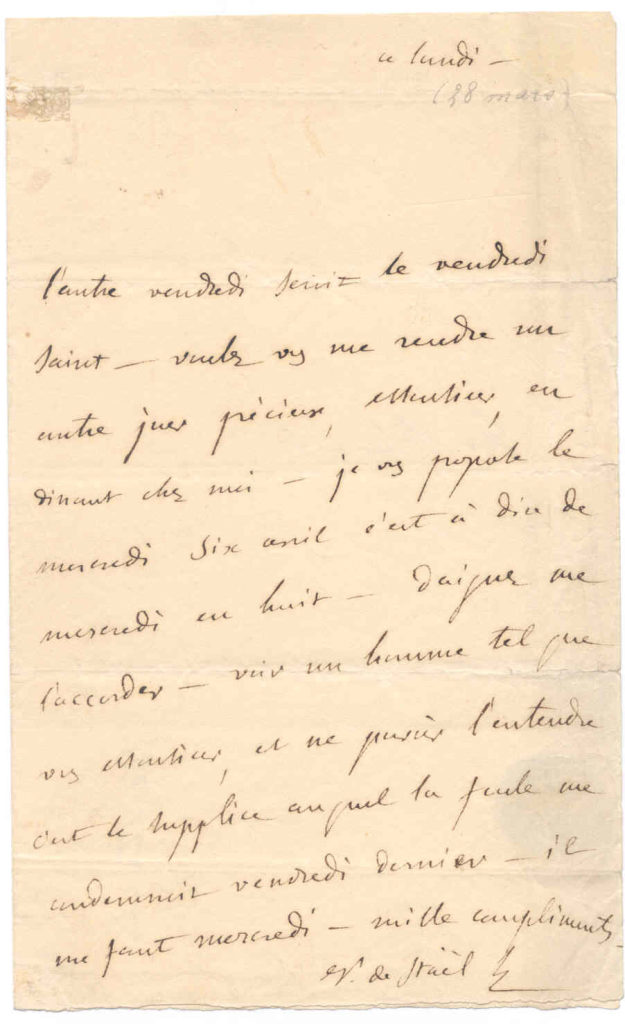 ce lundi —
(28 mars)
l'autre vendredi seroit le vendredi
saint — voulez vs me rendre un
autre jour précieux, Monsieur, en
dinant chez moi — je vs propose le
mercredi six avril c'est à dire de
mercredi en huit — daignez me
l'accorder — voir un homme tel que
vs Monsieur, et ne pouvoir l'entendre
c'est le supplice auquel la foule me
condamnoit vendredi dernier — il
me faut mercredi — mille compliments
de Staël